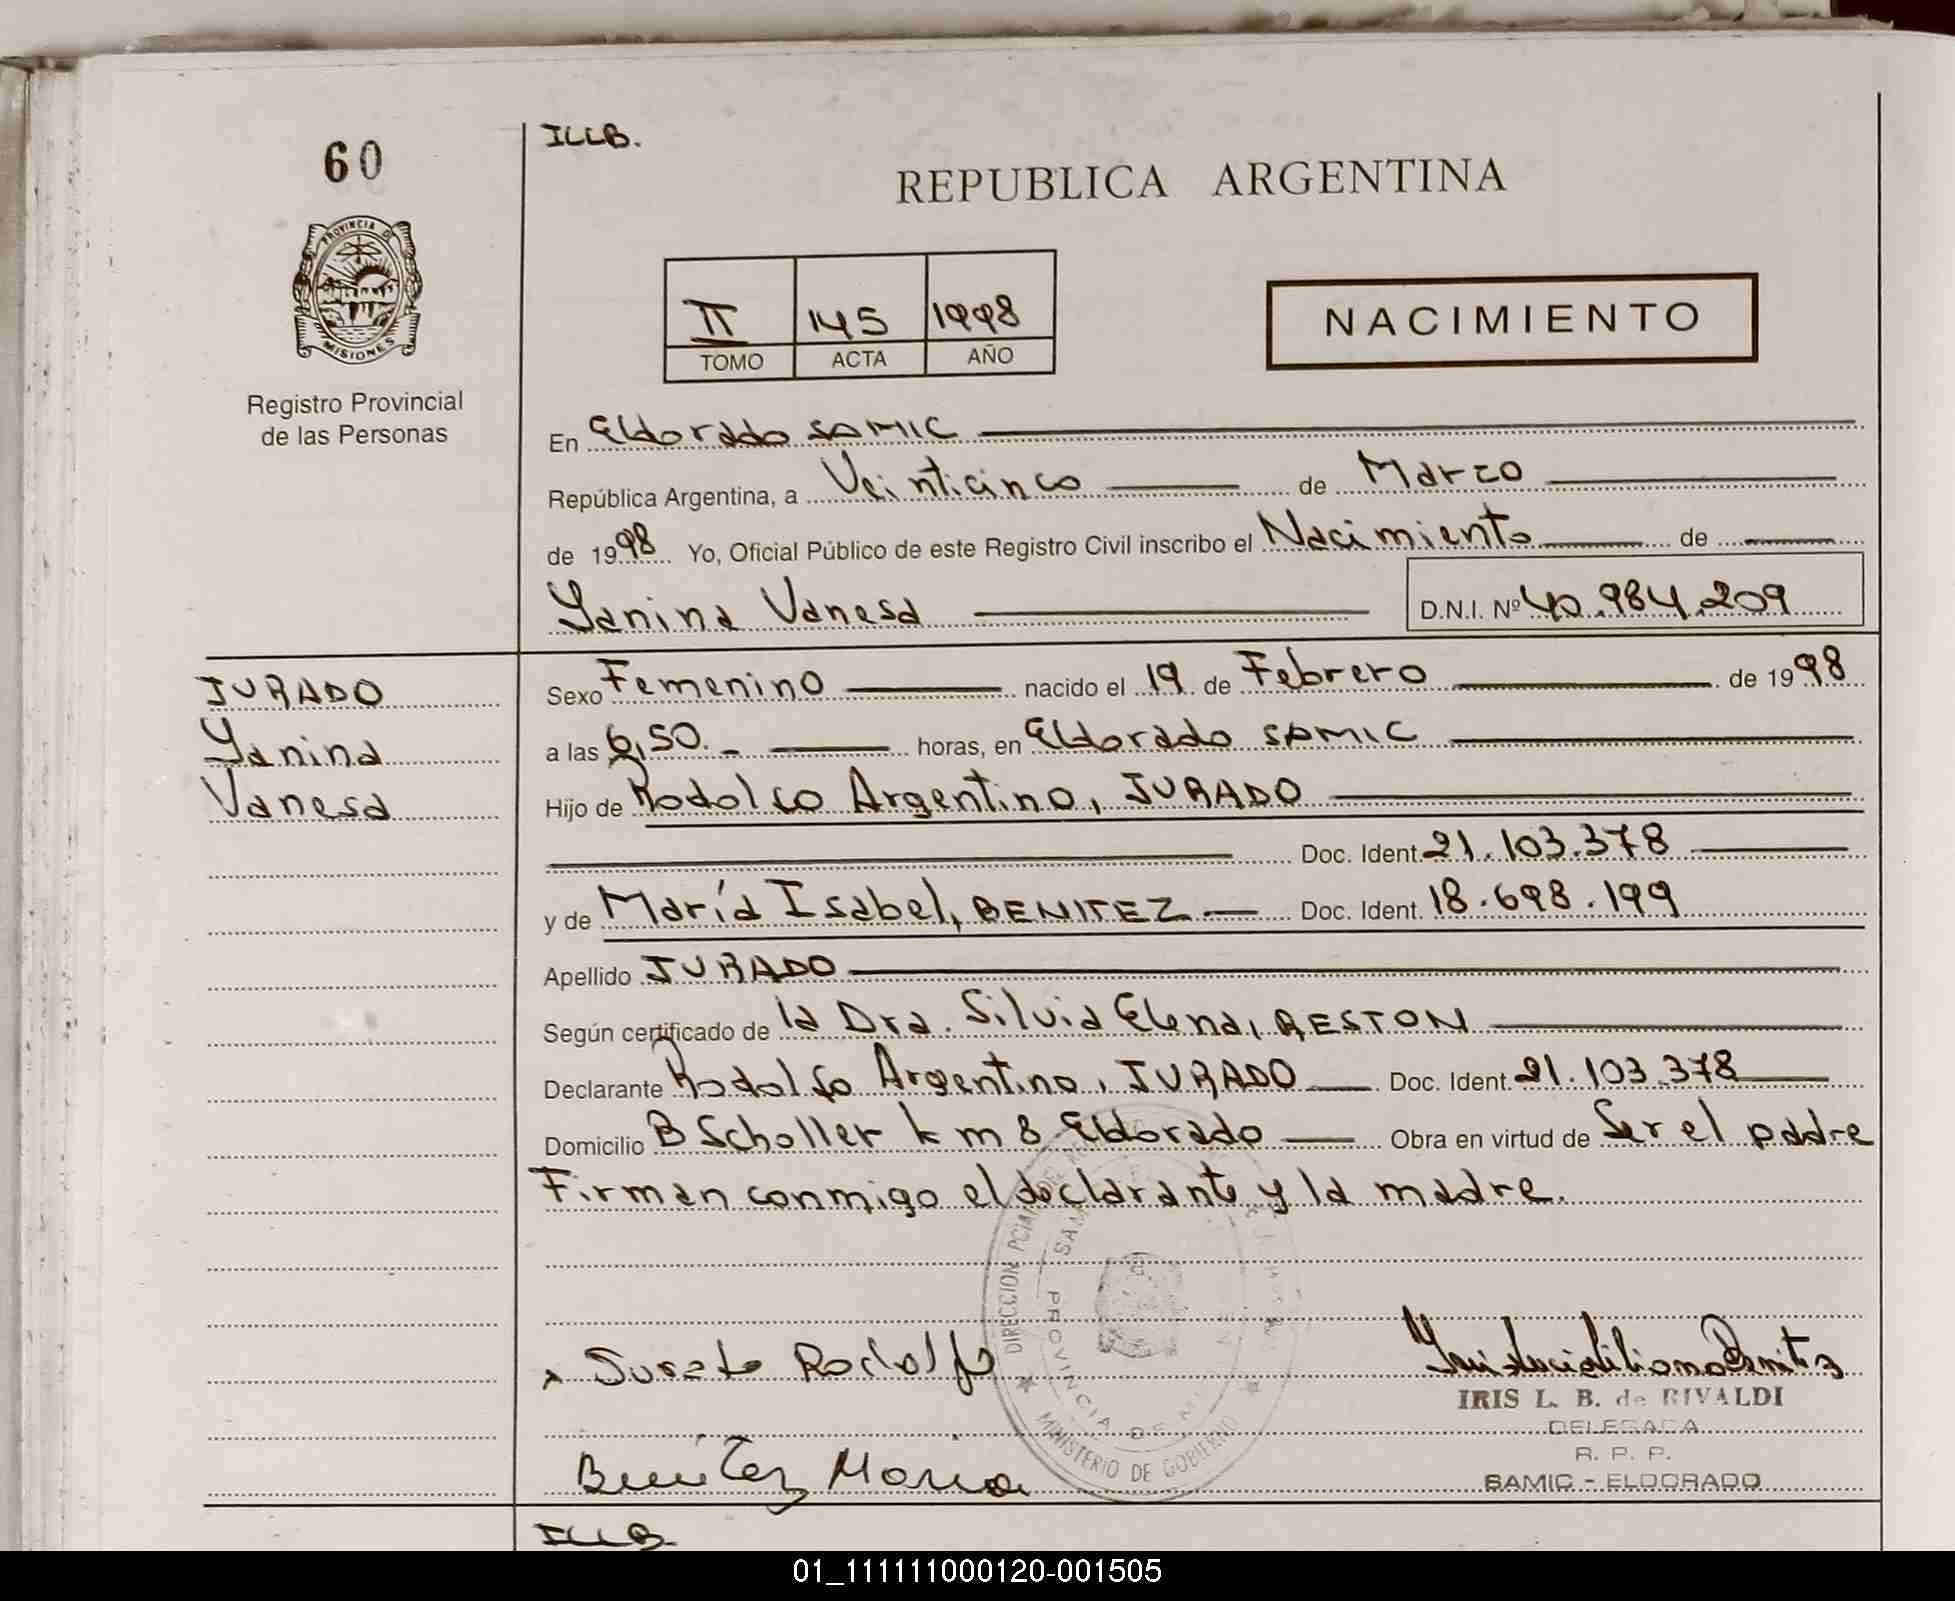 60
PROVINCIA D
MISIONES
Registro Provincial
de las Personas
ILLB.
REPUBLICA ARGENTINA
II 145 1998
TOMO ACTA AÑO
NACIMIENTO
En Eldorado SAMIC
República Argentina, a Veinticinco de Marzo
de 1998 Yo, Oficial Público de este Registro Civil inscribo el Nacimiento de
Yanina Vanesa D.N.I. Nº 40.984.209
JURADO
Yanina
Vanesa
Sexo Femenino nacido el 19 de Febrero de 1998
a las 6,50.- horas, en Eldorado SAMIC
Hijo de Rodolfo Argentino, JURADO
Doc. Ident. 21.103.378
y de María Isabel, BENITEZ.- Doc. Ident. 18.698.199
Apellido JURADO
Según certificado de la Dra. Silvia Elena, RESTON
Declarante Rodolfo Argentino, JURADO Doc. Ident. 21.103.378
Domicilio B Scholler km 8 Eldorado Obra en virtud de Ser el padre
Firman conmigo el declarante y la madre.
DIRECCION PCIAL DEL
PROVINCIA DE
MINISTERIO DE GOBIERNO
Rodolfo
Benitez Maria
IRIS L. B. de RIVALDI
DELEGADA
R. P. P.
SAMIC - ELDORADO
ILLB.
01_111111000120-001505